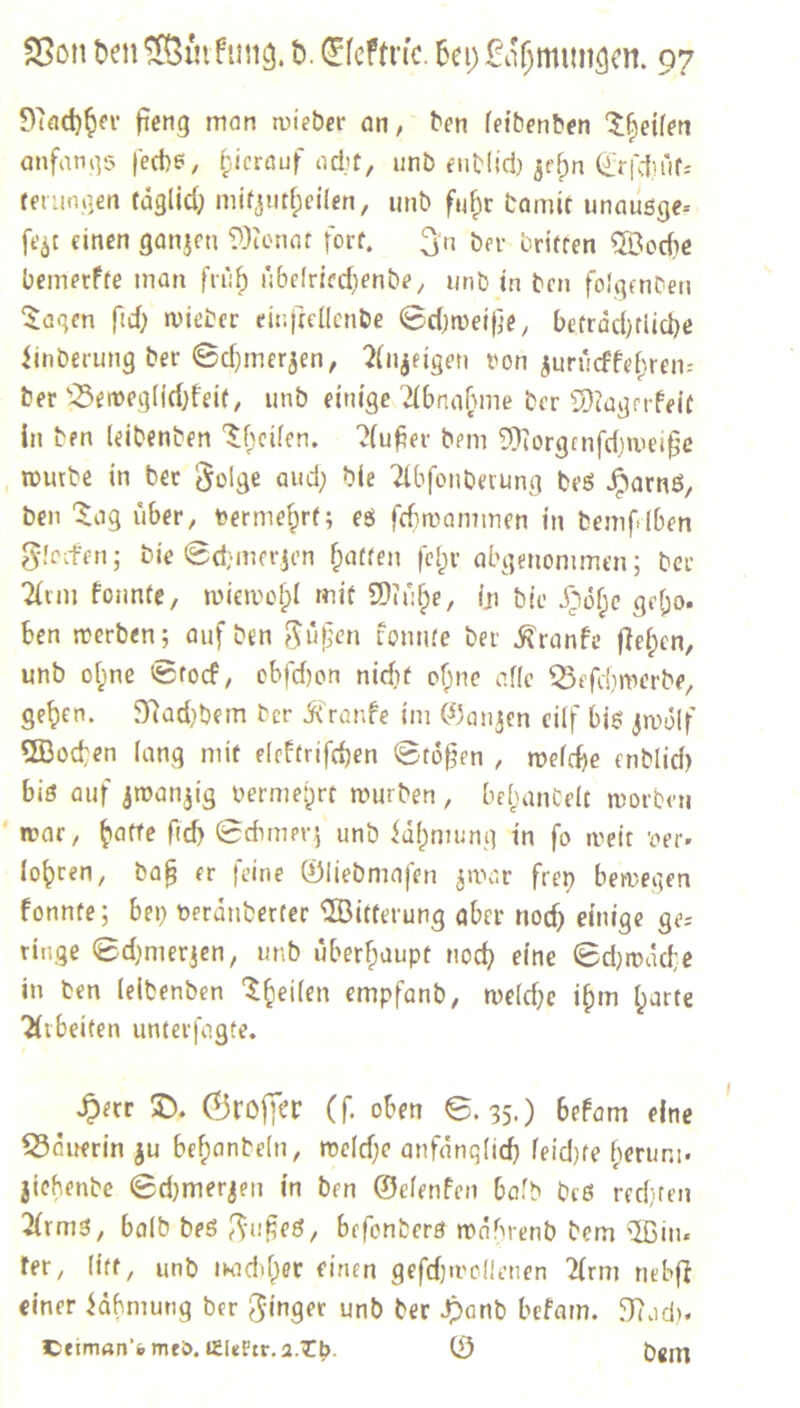 Von den Würkung. d. Elektric. bey Lähmungen. 97
Nachher fieng man wieder an, den leidenden Theilen
anfangs sechs, hierauf acht, und endlich zehn Erschüt-
terungen täglich mitzutheilen, und fuhr damit unausge-
sezt einen ganzen Monat fort. In der dritten Woche
bemerkte man früh übelriechende, und in den folgenden
Tagen sich wieder einstellende Schweiße, beträchtliche
Linderung der Schmerzen, Anzeigen von zurückkehren-
der Beweglichkeit, und einige Abnahme der Magerkeit
in den leidenden Theilen. Außer dem Morgenschweiße
wurde in der Folge auch die Absonderung des Harns,
den Tag über, vermehrt; es schwammen in demselben
Flocken; die Schmerzen hatten sehr abgenommen; der
Arm konnte, wiewohl mit Mühe, in die Höhe geho-
ben werden; auf den Füßen konnte der Kranke stehen,
und ohne Stock, obschon nicht ohne alle Beschwerde,
gehen. Nachdem der Kranke im Ganzen eilf bis zwölf
Wochen lang mit elektrischen Stößen, welche endlich
bis auf zwanzig vermehrt wurden, behandelt worden
war, hatte sich Schmerz und Lähmung in so weit ver-
lohren, daß er seine Gliedmaßen zwar frey bewegen
konnte; bey veränderter Witterung aber noch einige ge-
ringe Schmerzen, und überhaupt noch eine Schwäche
in den leidenden Theilen empfand, welche ihm harte
Arbeiten untersagte.
Herr D. Grosser (s. oben S. 35.) bekam eine
Bäuerin zu behandeln, welche anfänglich leichte herum-
ziehende Schmerzen in den Gelenken bald des rechten
Arms, bald des Fußes, besonders während dem Win-
ter, litt, und nachher einen geschwollenen Arm nebst
einer Lähmung der Finger und der Hand bekam. Nach-
Deiman's med. Elektr. 2.Th. G dem